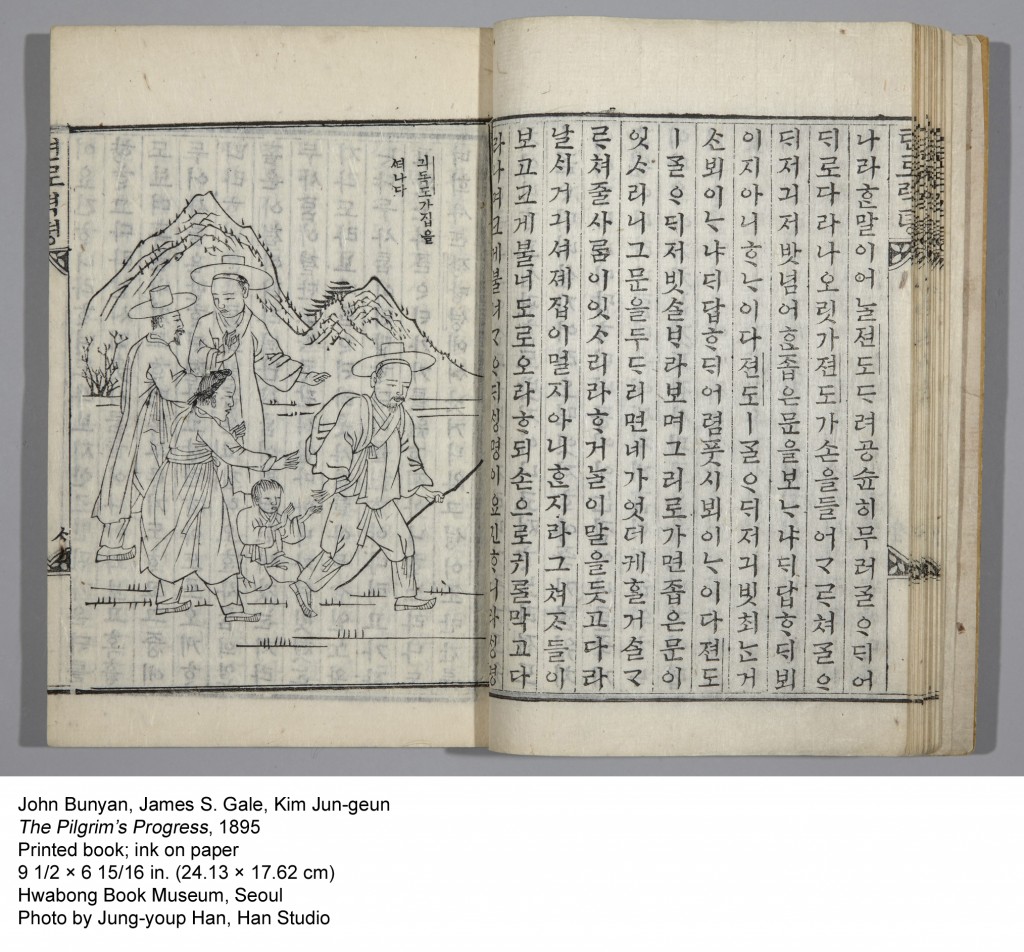 텬로력뎡
나라ᄒᆞᆫ말이어ᄂᆞᆯ젼도ᄃᆞ려공슌히무러ᄀᆞᆯᄋᆞᄃᆡ어
ᄃᆡ로다라나오릿가젼도가손을들어ᄀᆞᄅᆞ쳐ᄀᆞᆯᄋᆞ
ᄃᆡ저긔저밧념어ᄒᆞᆫ좁은문을보ᄂᆞ냐ᄃᆡ답ᄒᆞᄃᆡ뵈
이지아니ᄒᆞᄂᆞ이다젼도ㅣᄀᆞᆯᄋᆞᄃᆡ저긔빗최ᄂᆞᆫ거
ᄉᆞᆫ뵈이ᄂᆞ냐ᄃᆡ답ᄒᆞᄃᆡ어렴풋시뵈이ᄂᆞ이다젼도
ㅣᄀᆞᆯᄋᆞᄃᆡ저빗ᄉᆞᆯᄇᆞ라보며그리로가면좁은문이
잇ᄉᆞ리니그문을두ᄃᆞ리면네가엇더케ᄒᆞᆯ거ᄉᆞᆯᄀᆞ
ᄅᆞ쳐줄사ᄅᆞᆷ이잇ᄉᆞ리라ᄒᆞ거ᄂᆞᆯ이말을듯고다라
날ᄉᆡ거긔셔졔집이멀지아니ᄒᆞᆫ지라그쳐ᄌᆞ들이
보고크게불너도로오라ᄒᆞ되손으로귀ᄅᆞᆯ막고다
라나며크게불너ᄀᆞᆯᄋᆞᄃᆡ싱명이요긴ᄒᆞ니라싱명
긔독도가집을
셔나다
텬로력뎡
John Bunyan, James S. Gale, Kim Jun-geun
The Pilgrim's Progress, 1895
Printed book; ink on paper
9 1/2 × 6 15/16 in. (24.13 × 17.62 cm)
Hwabong Book Museum, Seoul
Photo by Jung-youp Han, Han Studio